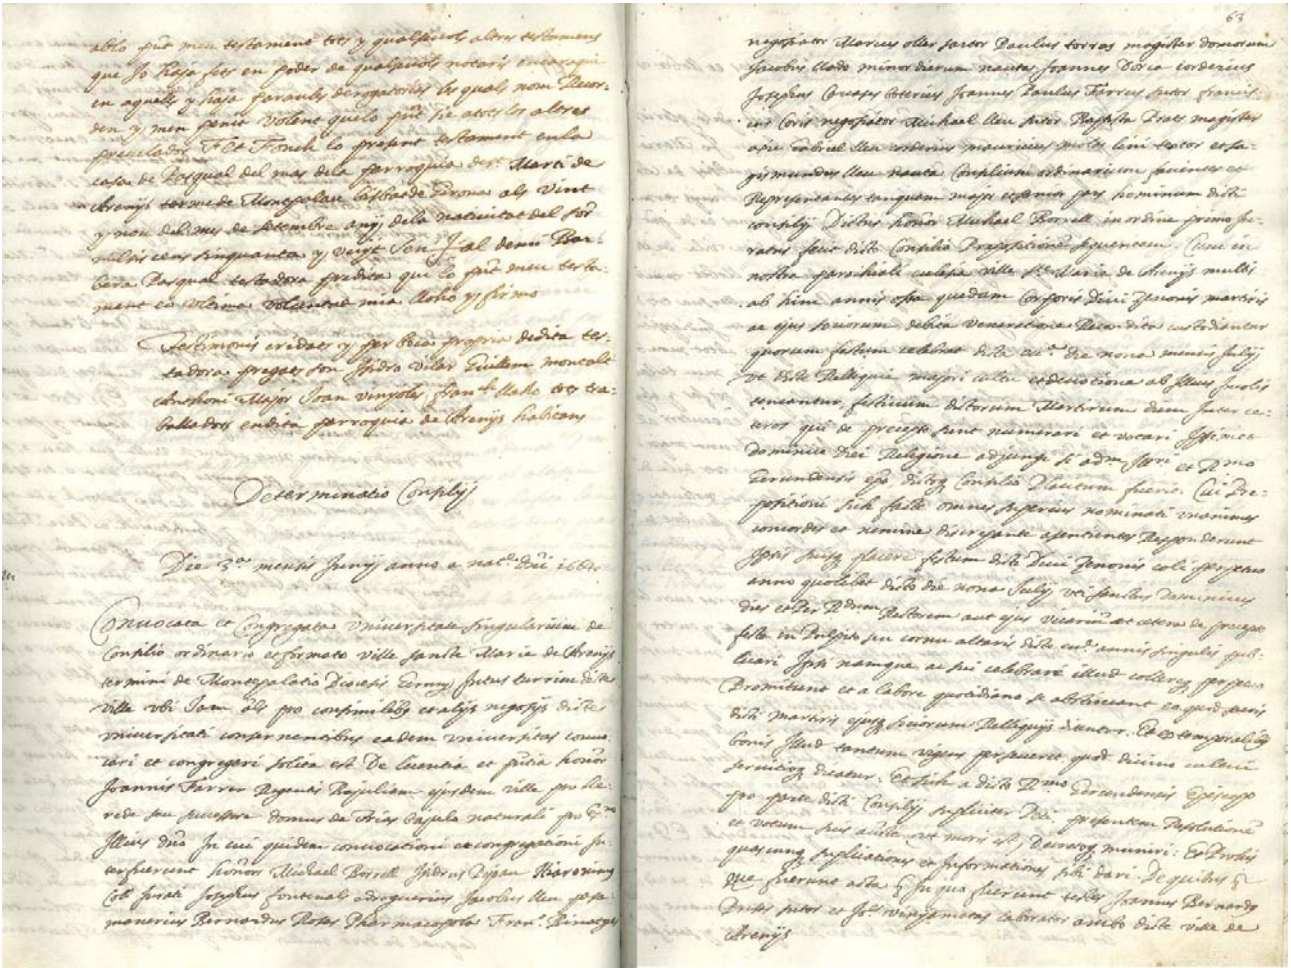 altlo pñt meu testament tots y qualsevols altres testaments
que Jo haja fets en poder de qualsevols notaris encaraque
en aquells y haja paraules derogatorias les quals nom Recor-
den y men penit volent quelo pñt sie atots los altres
preuelador Fet Fonch lo present testament enla
casa de Pasqual del mas dela parroquia de st. Marti de
Arenÿs terme de Montpalau bisbat de Girona als vint
y nou del mes de setembre anÿ dela nativitat del Sor
mil sis cens sinquanta y
bera Pasqual testadora predita qui lo pñt meu testa-
ment ea ultima voluntat mia lloho y firmo
Testimonis cridats y per boca propria dedita tes-
tadora pregats son Isidro vilar Guillem montalt
Anthoni Major Joan vinyoles franch. llobo tres tra-
balladors endita parroquia de Arenÿs habitans
Determinatio Consilÿ
Die 3a. mensis Junÿ anno a nate. Dñi 1664.
Convocata et Congregata Universitate singularium de
Consilio ordinario et formato ville sancte Marie de Arenÿs
termini de Montepalatio Diocesis Gerunÿ intus turrim dicte
ville ubi Jam als pro consimilibus et alÿs negosÿs dicte
universitati consernentibus eadem universitas convo-
cari et congregari solita est De licentia et pñtia honor
Joannis Farrer Regentis Bajuliam ejusdem ville pro he-
rede seu sucessore domus de Arias bajulo naturali pro
Illius dño In qui quidem convocatione et congregatione in-
terfuerunt honor Michael Borrell Isidrus Pascual Hieronimus
Coll Jurati Josephus fontanals adroguerius Jacobus lleu
Bernardus Rotes Pharmacopola Franc. Pinatges
63
negosiator Marcus oller sartor Paulus torras magister domorum
Jacobus llado minor dierum nauta Joannes Doria corderius
Josephus boterius Joannes Paulus Ferrus sutor francis-
cus Coris negosiator Michael lleu sutor Baptista Prats magister
axie Gabriel lleu corderius mauricius moles lini textor et si-
gismundus lleu nauta Consilium ordinarium facientes et
Representantes tanquam major et senior pars hominum dicti
consilÿ Dictus honor Michael Borrell in ordine primo ju-
ratus fecit dicto Consilio Propositionem sequentem. Cum in
nostra parrochiali eclesia ville Ste. Marie de Arenÿs multis
ab hinc annis ossa quedam Corporis Divi Zenonis martiris
ac ejus sociorum debita veneratione Recondita custodiantur
quorum festum celebrat dicta die nona mensis Julÿ
ut dicte Relliquie majori cultu et devotione ab Illius Incolis
teneantur, festivum dictorum Martirum diem Inter ce-
teros qui de precepto sunt numerari et vocari
dominice Diei Religione adjungi si adm. Illri et Rmo
Gerundensis epo dictoq Consilio Placitum fuerit. Cui Pro-
positioni sich facte omnes superius nominati unanimes
concordes et nemine discrepante asentientes Responderunt
Ipsis placere festum dicti Divi Zenonis coli perpetuo
anno quolibet dicto die nona Julÿ uti sanctus Dominicus
dies et Per Rdum Rectorem aut ejus vicarium ut cetera de precepto
festa in Pulpito seu cornu altaris dicte annis singulis pub-
licari Ipsi namque ac sui celebrare illud collereq perpetuo
Promittunt et a labore quotidiano se abstineant eo quod sacris
dicti martiris ejusq sociorum Relliquÿs dicantur. Et ex temporalibus
bonis Illud tantum perseveret quod divino cultui
servitioq dicatur. Et sich a dicto Rmo Gerundensis Episcopo
pro parte dicti Consilÿ supliciter Peti presentem Resolutionem
et votum suis autte. ut moris est Decretoq muniri: Et Prohis
quascunq suplicationes et Informationes sibi dari. De quibus
Que fuerunt acta in qua fuerunt testes Joannes Bernardus
Prats sutor et Jos. vinyamatas laborator ambo dicte ville de
Arenÿs